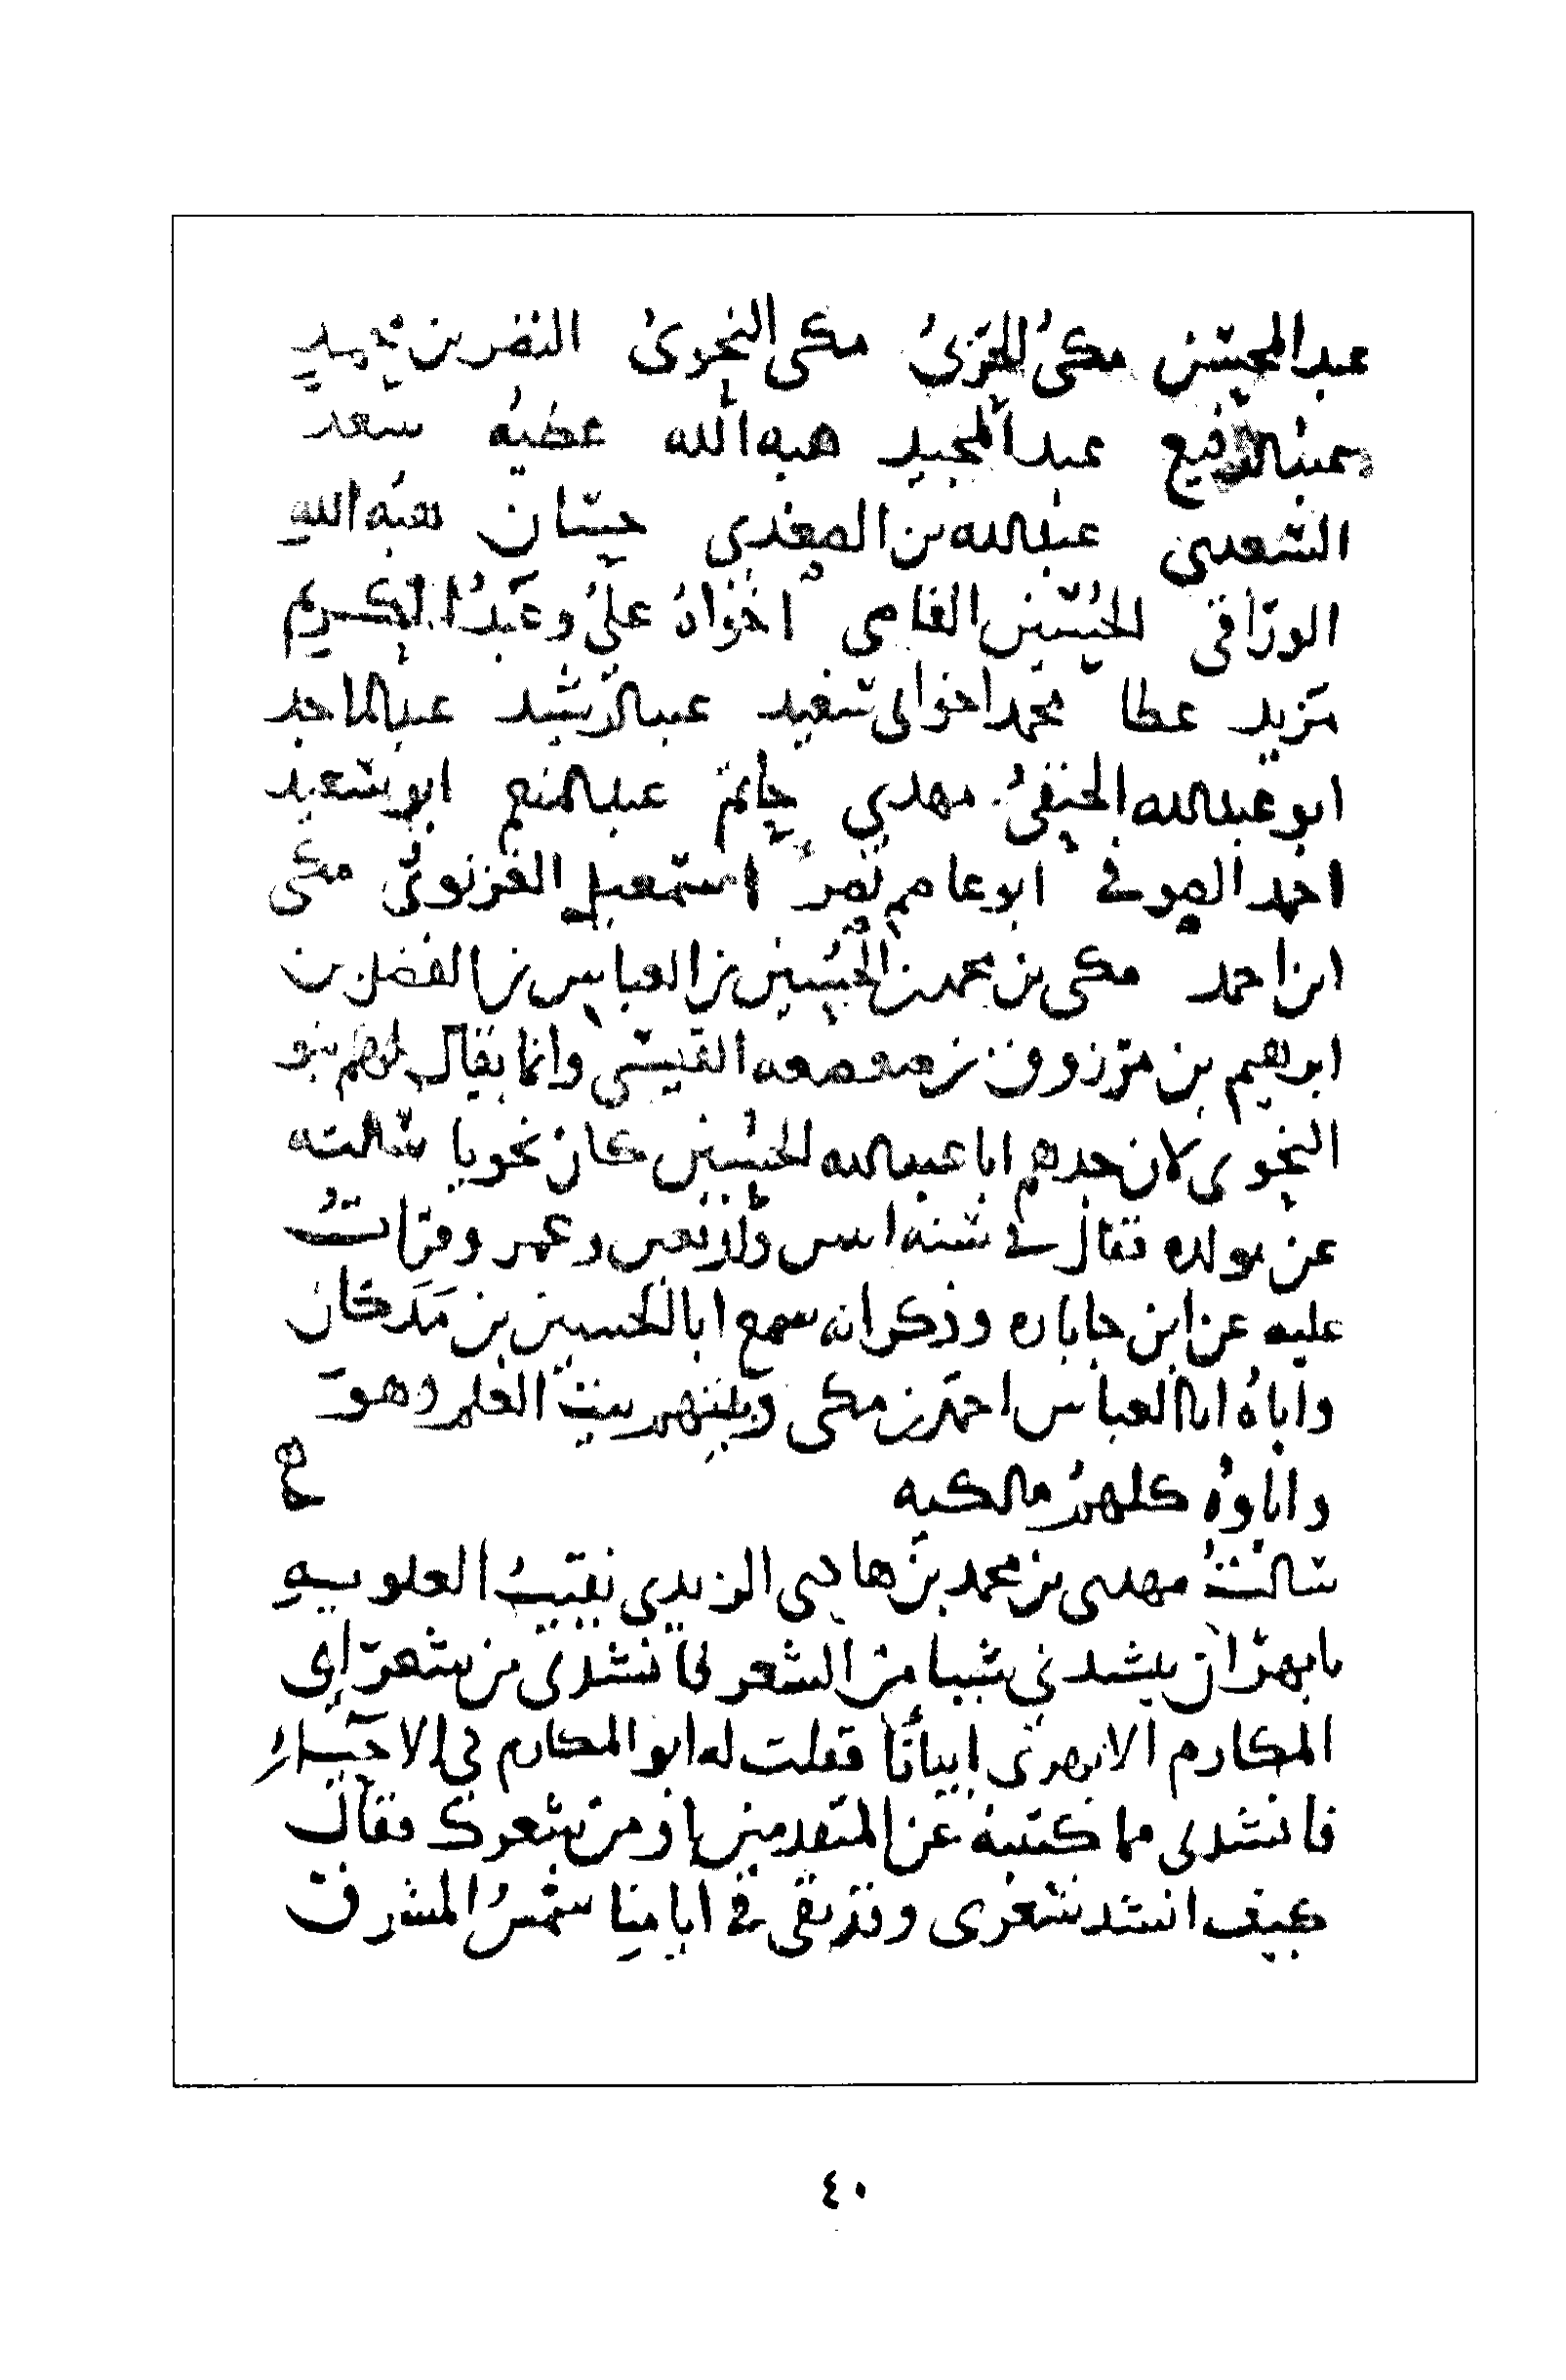 عبد المحسن مكي الحزي مكي النحوي النضر بن
عبد الرفيع عبد المجيد هبه الله عطيه سعد
السعدي عبد الله بن المهدي حسان هبه الله
الوراق الحسين القاضي اخواه علي وعبد الكريم
مزيد عطا محمد اخوا ابي سعيد عبد الرشيد عبد الماجد
ابو عبد الله الحنفي مهدي حاتم عبد المنعم ابو سعيد
احمد الصوفي ابو عاصم نصر اسمعيل الغزنوي مكي
ابن احمد مكي بن محمد بن الحسين بن العباس بن الفضل بن
ابرهيم بن مرزوق بن صعصعه القيسي وانما يقال لهم بنو
النحوي لان جدهم ابا عبد الله الحسين كان نحويا سالته
عن مولده فقال في سنه اربعين وعمر وقرات
عليه عن ابن جاباره وذكر انه سمع ابا الحسين بن مدكان
واباه ابا العباس احمد بن مكي وبيتهم بيت العلم وهو
واباوه كلهم مالكيه
سالت مهدي بن محمد بن هادي الزيدي نقيب العلويه
بابهر ان ينشدني شيا من الشعر فانشدني من شعر ابي
المكارم الابهري ابياتا فقلت له ابو المكارم في الاحياء
فانشدني مما كتبته عن المتقدمين او من شعرك فقال
كيف انشد شعري وقد بقي في ايامنا شمس المشرق
٤٠